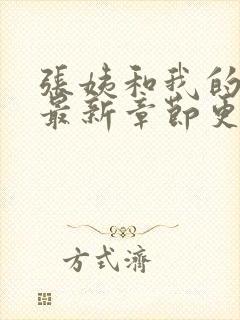 張姨和我的
最新章節更
方式濟